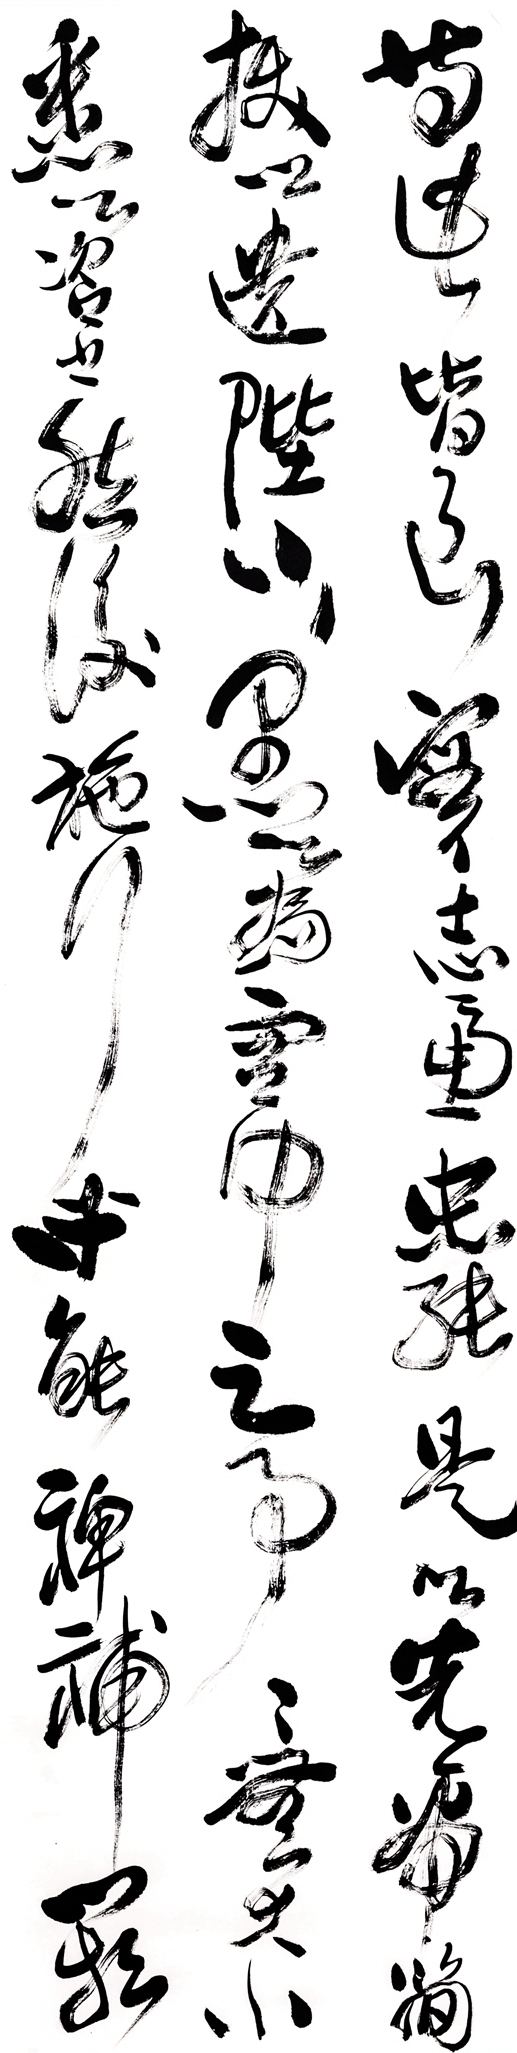 等此皆良實志慮忠純是以先帝簡
拔以遺陛下愚以為宮中之事〻無大小
悉以咨之然後施行必能裨補闕